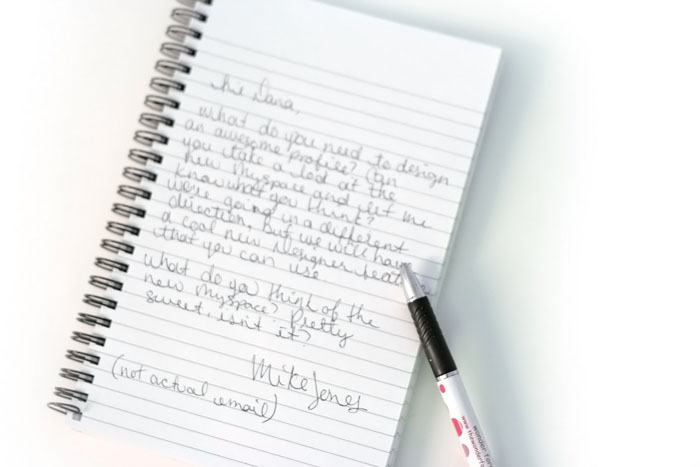 Hi Dana,
What do you need to design
an awesome profile? Can
you take a look at the
new Myspace and let me
know what you think?
We're going in a different
direction, but we will have
a cool new designer feature
that you can use.
What do you think of the
new Myspace? Pretty
sweet, isn't it?
Mike Jones
(not actual email)